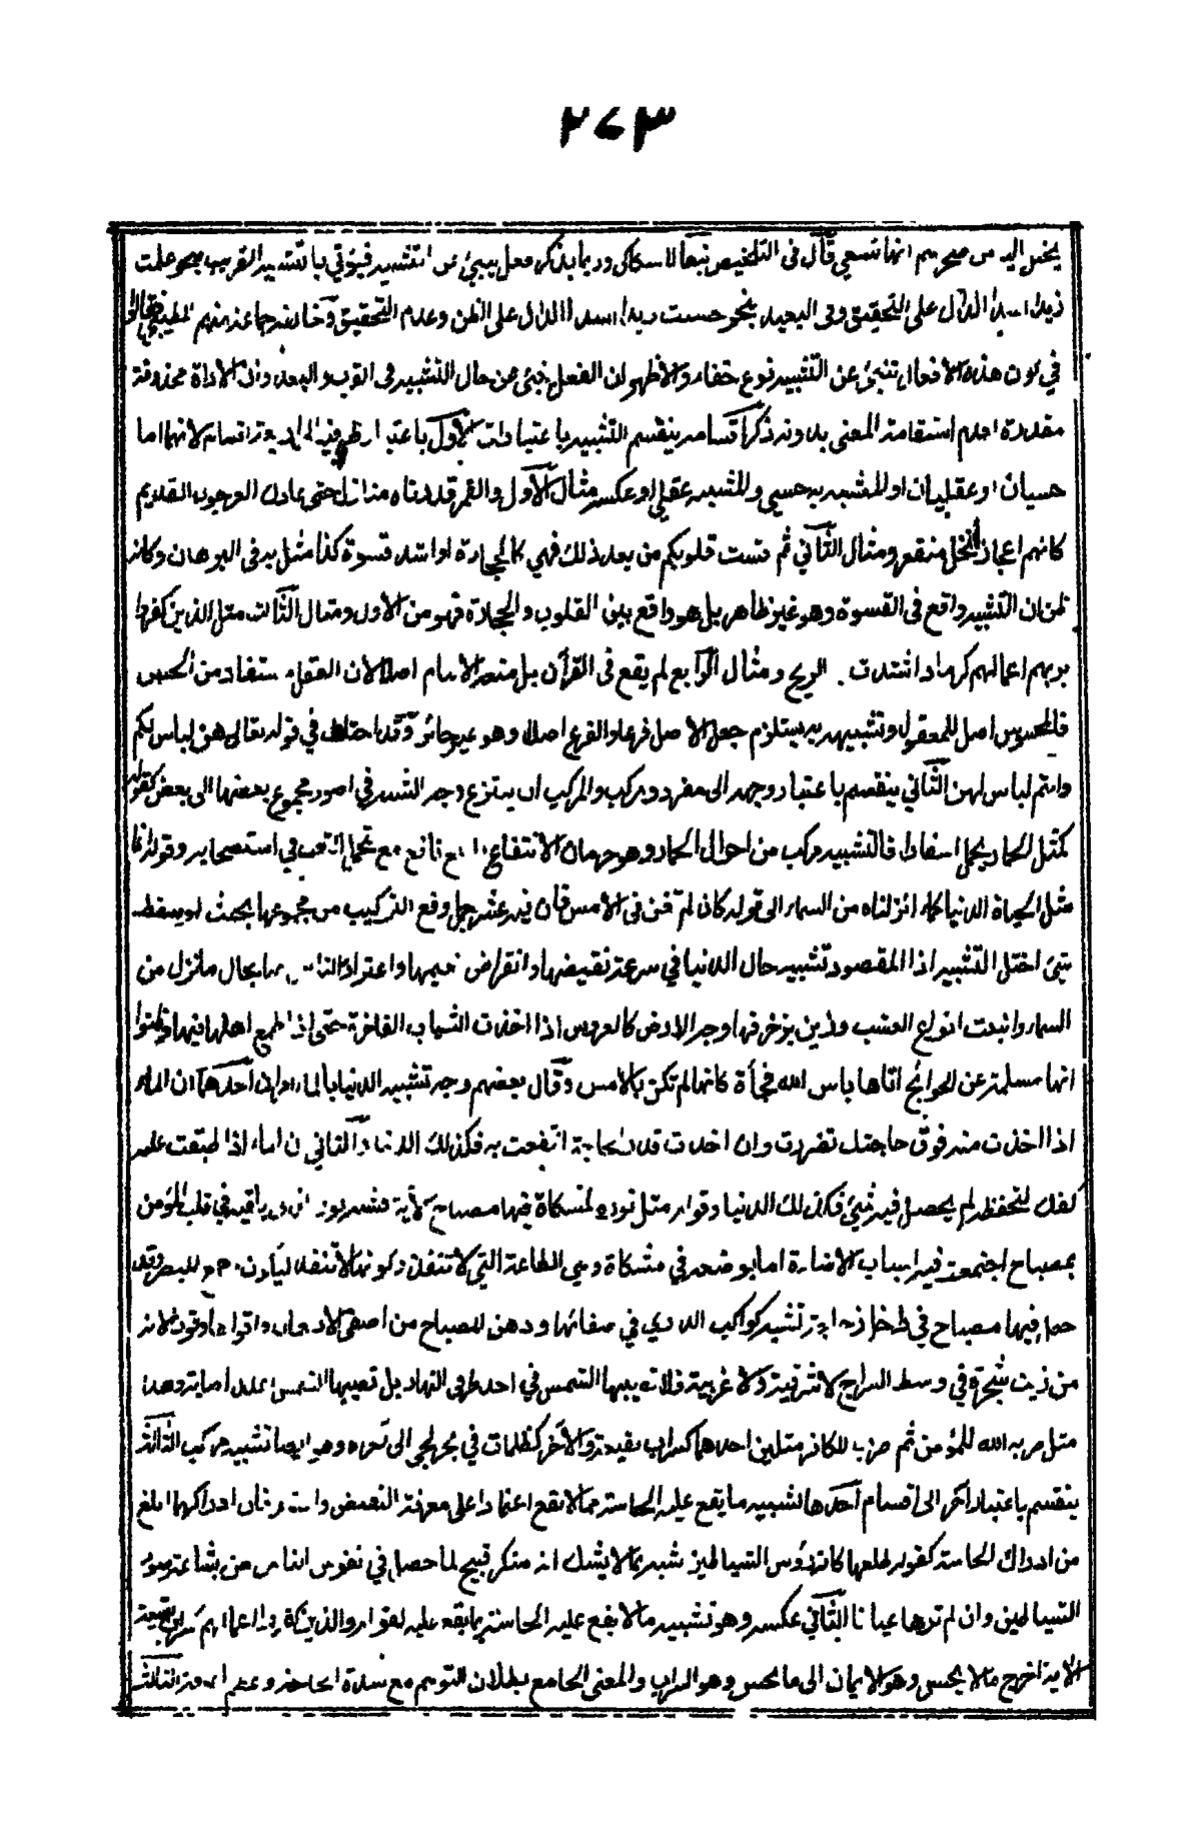 ٢٧٣
يخيل اليه من سحرهم انها تسعى قال فى التلخيص تبعا للسكاكى وربما يذكر فعل ينبئ عن التشبيه فيؤتي با لتشبيه القريب بنحو علمت
زيدا اسدا الدال على التحقيق وفى البعيد بنحو حسبت زيدا اسدا الدال على الظن وعدم التحقيق وخالفه جماعة منهم الطيبى فقالوا
في كون هذه الافعال تنبئ عن التشبيه نوع خفاء والاظهر ان الفعل ينبئ عن حال التشبيه فى القرب والبعد وان الاداة محذوفة
مقدرة لعدم استقامة المعنى بدونه ذكر اقسامه ينقسم التشبيه با عتبارات الاول باعتبار طرفيه الى اربعة اقسام لانهما اما
حسيان او عقليان او المشبه به حسي والمشبه عقلي او عكسه مثال الاول والقمر قدرناه منازل حتى عاد كالعرجون القديم
كانهم اعجاز نخل منقعر ومثال الثاني ثم قست قلوبكم من بعد ذلك فهي كالحجارة او اشد قسوة كذا مثل به فى البرهان وكانه
ظن ان التشبيه واقع فى القسوة وهو غير ظاهر بل هو واقع بين القلوب والحجارة فهو من الاول ومثال الثالث مثل الذين كفروا
بربهم اعمالهم كرماد اشتدت به الريح ومثال الرابع لم يقع فى القرآن بل منعه الامام اصلا لان العقل مستفاد من الحس
فالمحسوس اصل للمعقول وتشبيهه به يستلزم جعل الاصل فرعا والفرع اصلا وهو غير جائز وقد اختلف في قوله تعالى هن لباس لكم
وانتم لباس لهن الثاني ينقسم با عتبار وجهه الى مفرد ومركب والمركب ان ينتزع وجه الشبه في امور مجموع بعضها الى بعض كقوله
كمثل الحمار يحمل اسفارا فالتشبيه مركب من احوال الحمار وهو حرمان الانتفاع بابلغ نافع مع تحمل التعب في استصحابه وقوله انما
مثل الحياة الدنيا كماء انزلناه من السماء الى قوله كان لم تغن فى الامس فان فيه عشر جمل وقع التركيب من مجموعها بحيث لو سقط
شئ اختل التشبيه اذ المقصود تشبيه حال الدنيا في سرعة نقيضها وانقراض نعيمها واغترار الناس بها بحال ما نزل من
السماء وانبت انواع العشب وزين بزخرفها وجه الارض كالعروس اذا اخذت الثياب الفاخرة حتى اذا طمع اهلها فيها وظنوا
انها مسلمة عن الحوائج اتاها باس الله فجأة كانها لم تكن بالامس وقال بعضهم وجه تشبيه الدنيا بالماء امران احدهما ان الماء
اذا اخذت منه فوق حاجتك تضررت وان اخذت قدر الحاجة انتفعت به فكذلك الدنيا والثاني ان الماء اذا طبقت عليه
كفك لتحفظه لم يحصل فيه شئ فكذلك الدنيا وقوله مثل نوره كمشكاة فيها مصباح الآية فشبه نوره الذى يلقيه في قلب المؤمن
بمصباح اجتمعت فيه اسباب الاضاءة اما بوضعه في مشكاة وهي الطاعة التي لا تنفذ وكونها لا تنفذ ليكون اجمع للبصر وقد
جعل فيها مصباح في داخل زجاجة تشبه كواكب الدري في صفائها ودهن المصباح من اصفى الادهان واقواها وقودا لانه
من زيت شجرة في وسط السراج لا شرقية ولا غربية فلا تصيبها الشمس في احد طرفى النهار بل تصيبها الشمس اعدل اصابة وهذا
مثل ضربه الله للمؤمن ثم ضرب للكافر مثلين احدهما كسراب بقيعة والآخر كظلمات في بحر لجي الى آخره وهو ايضا تشبيه مركب الثالث
ينقسم باعتبار آخر الى اقسام احدها تشبيه ما يقع عليه الحاسة بما لا تقع اعتمادا على معرفة النقيض والضد فان ادراكهما ابلغ
من ادراك الحاسة كقوله طلعها كانه رؤس الشياطين شبه بما لا يشك انه منكر قبيح لما حصل في نفوس الناس من بشاعة صورة
الشياطين وان لم ترها عيانا الثاني عكسه وهو تشبيه ما لا يقع عليه الحاسة بما يقع عليه لقوله والذين كفروا اعمالهم كسراب بقيعة
الاية اخرج ما لا يحس وهو الايمان الى ما يحس وهو السراب والمعنى الجامع بطلان التوهم مع شدة الحاجة وعظم الفاقة الثالث